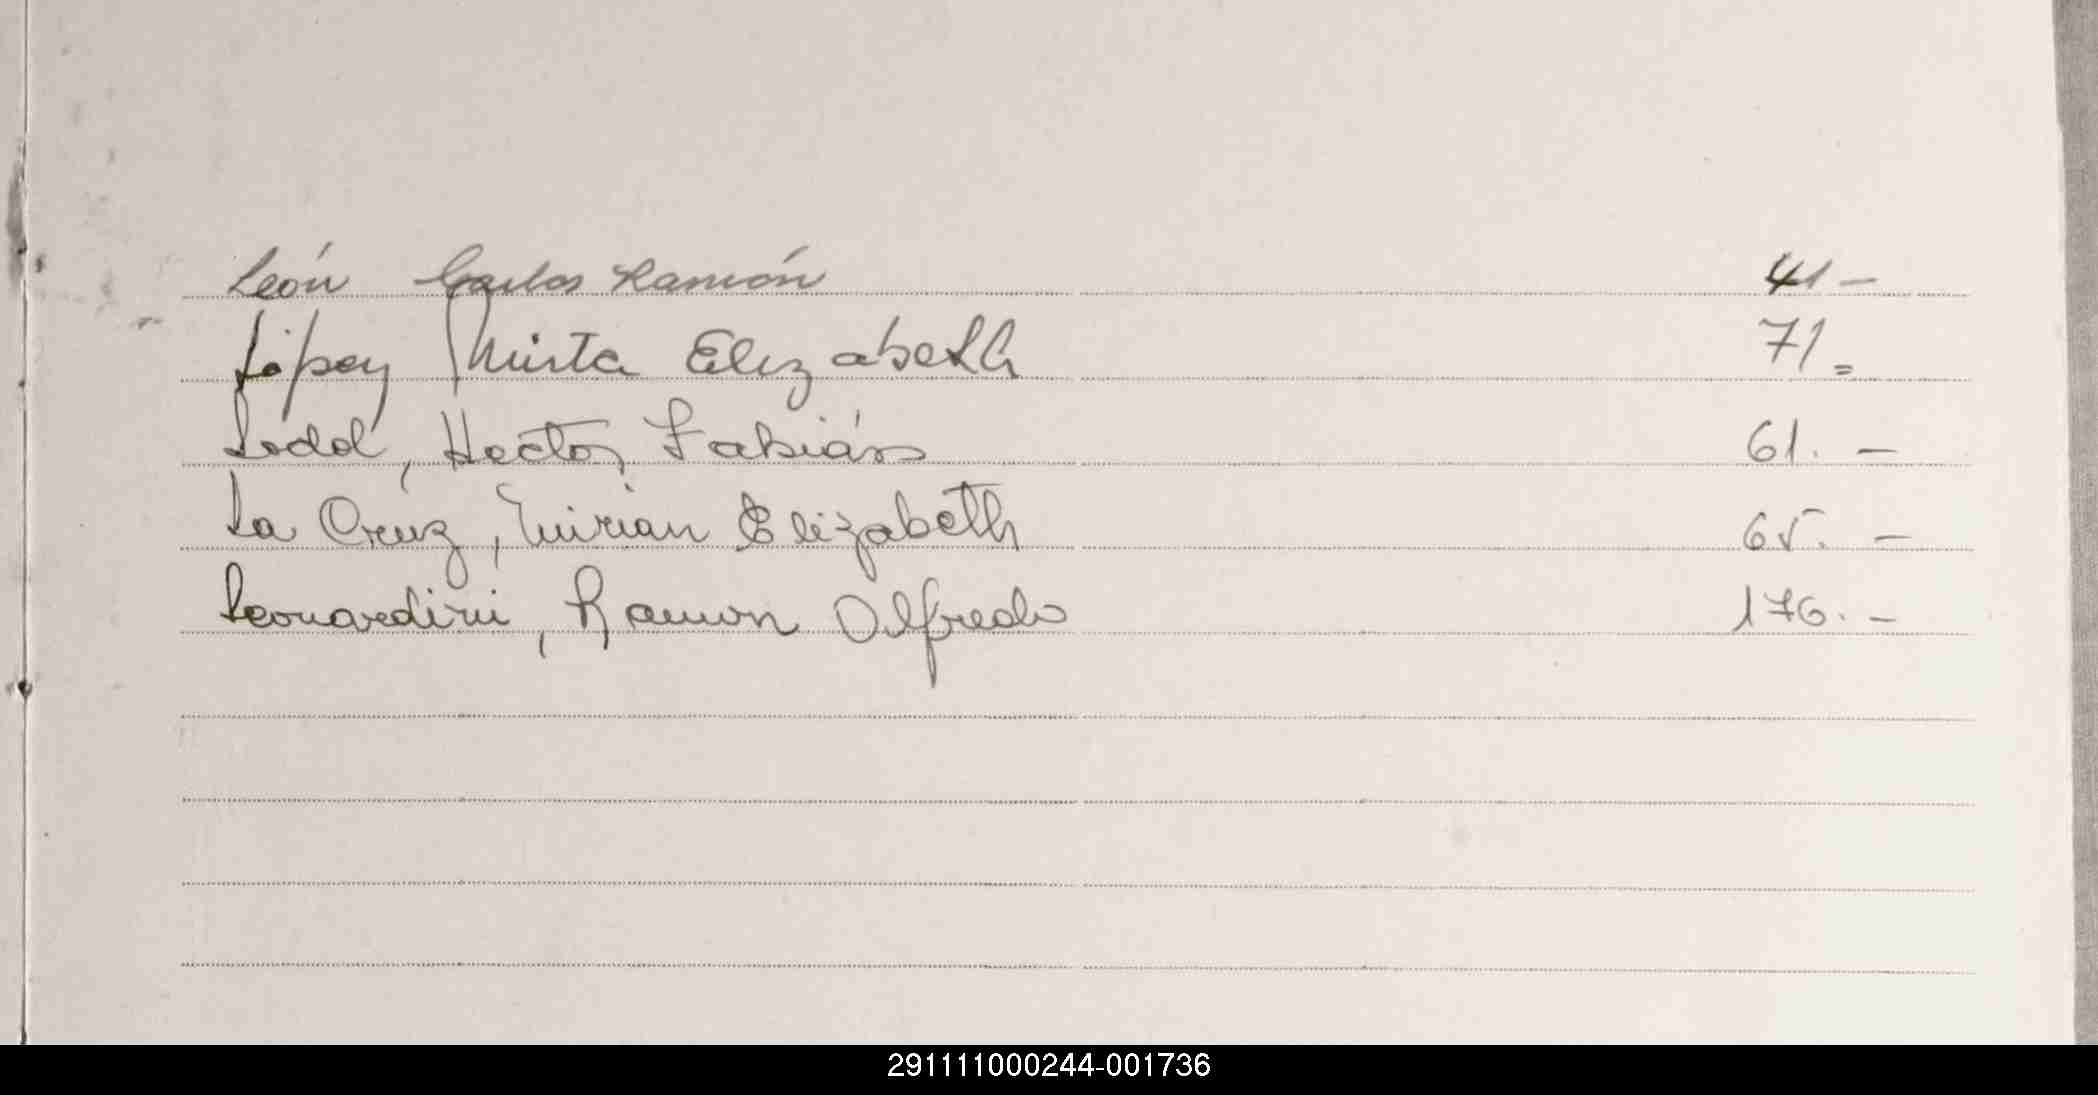 León Carlos Ramón 41 —
López Mirta Elizabeth 71 =
Lodol, Hector Fabián 61. —
La Cruz, Mirian Elizabeth 65. —
Leonardini, Ramon Alfredo 176. —
291111000244-001736